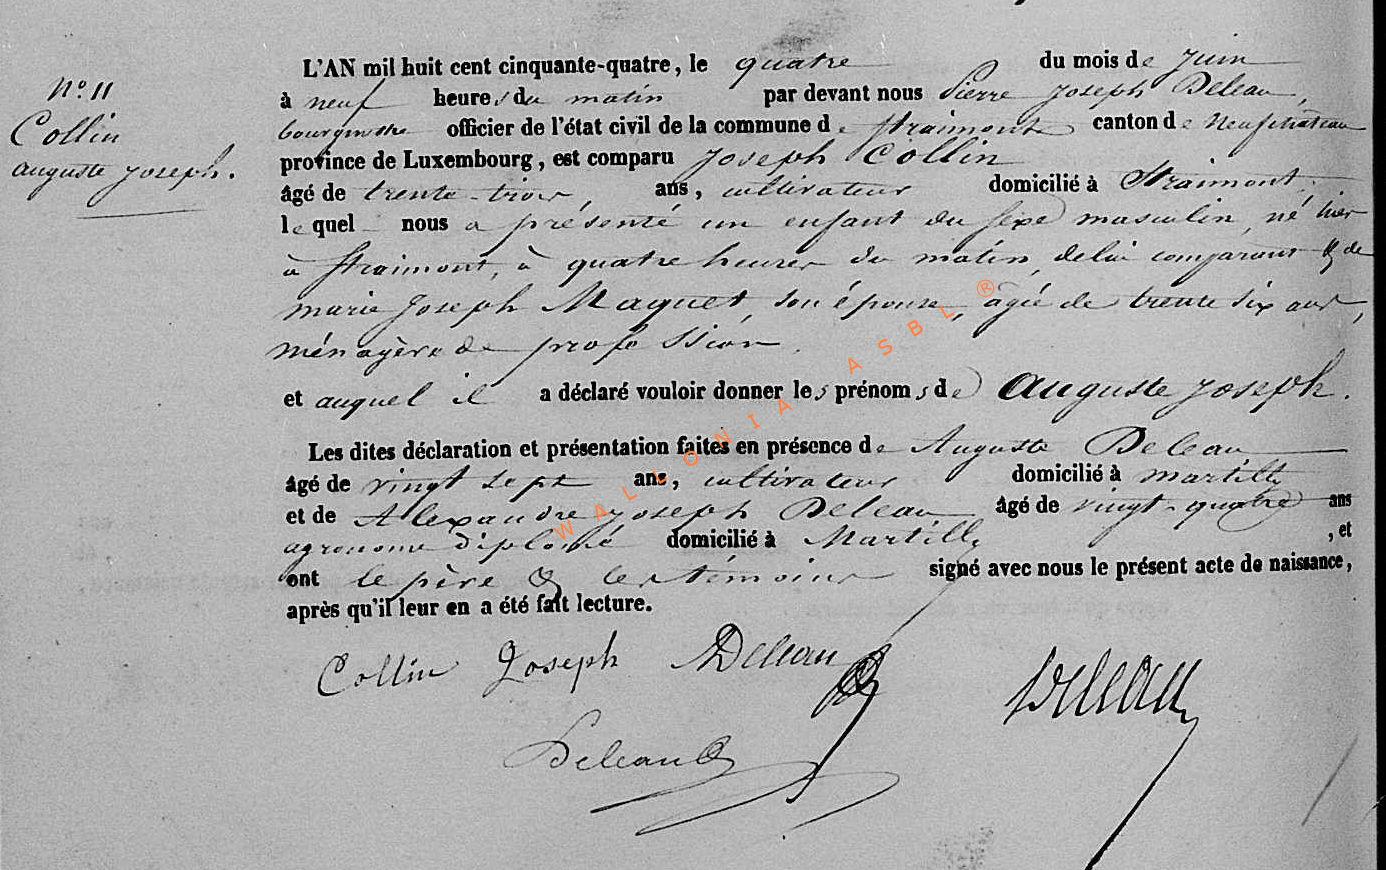 N° 11
Collin
auguste joseph.
L'AN mil huit cent cinquante-quatre, le quatre du mois de juin
à neuf heures du matin par devant nous Pierre Joseph Deleau,
bourgmestre officier de l'état civil de la commune de Straimont canton de Neufchateau
province de Luxembourg, est comparu Joseph Collin
âgé de trente-trois, ans, cultivateur domicilié à Straimont,
lequel nous a présenté un enfant du sexe masculin, né hier
à Straimont, à quatre heures du matin, de lui comparant & de
marie Joseph Maquet, son épouse, âgée de trente six ans,
ménagère de profession.
et auquel il a déclaré vouloir donner les prénoms de auguste joseph.
Les dites déclaration et présentation faites en présence de Auguste Deleau
âgé de vingt sept ans, cultivateur domicilié à martilly
et de Alexandre joseph Deleau âgé de vingt-quatre ans
agronome diplomé domicilié à Martilly, et
ont le père & les témoins signé avec nous le présent acte de naissance,
après qu'il leur en a été fait lecture.
Collin Joseph ADeleau Deleau
Deleau
WALLONIA ASBL ®